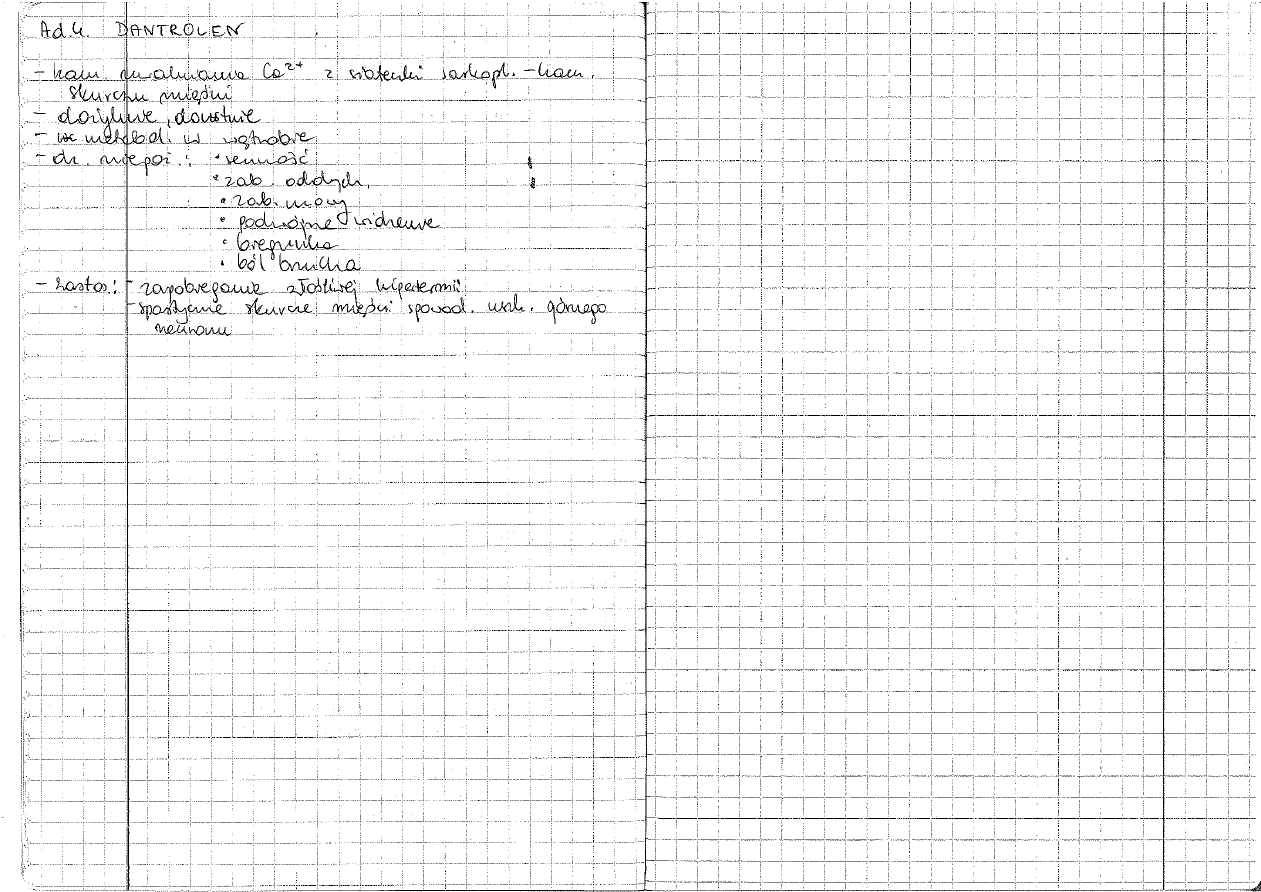 Ad.4. DANTROLEN
- ham. uwalniania Ca²⁺ z siateczki sarkopl. - ham.
skurczu mięśni
- dożylnie, doustnie
- metabol. w wątrobie
- dz. niepoż.: • senność
• zab. oddych.
• zab. mowy
• podwójne widzenie
• biegunka
• ból brzucha
- zastos.: - zapobieganie złośliwej hipertermii
- spastyczne skurcze mięśni spowod. uszk. górnego
neuronu